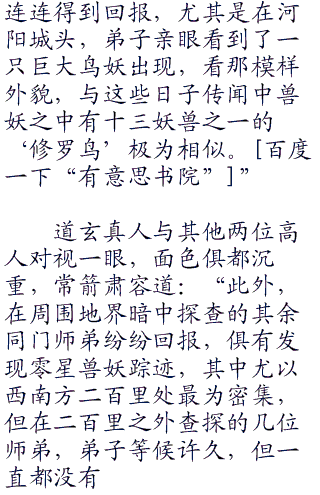 连连得到回报，尤其是在河
阳城头，弟子亲眼看到了一
只巨大鸟妖出现，看那模样
外貌，与这些日子传闻中兽
妖之中有十三妖兽之一的
‘修罗鸟’极为相似。[百度
一下“有意思书院”]”
道玄真人与其他两位高
人对视一眼，面色俱都沉
重，常箭肃容道：“此外，
在周围地界暗中探查的其余
同门师弟纷纷回报，俱有发
现零星兽妖踪迹，其中尤以
西南方二百里处最为密集，
但在二百里之外查探的几位
师弟，弟子等候许久，但一
直都没有